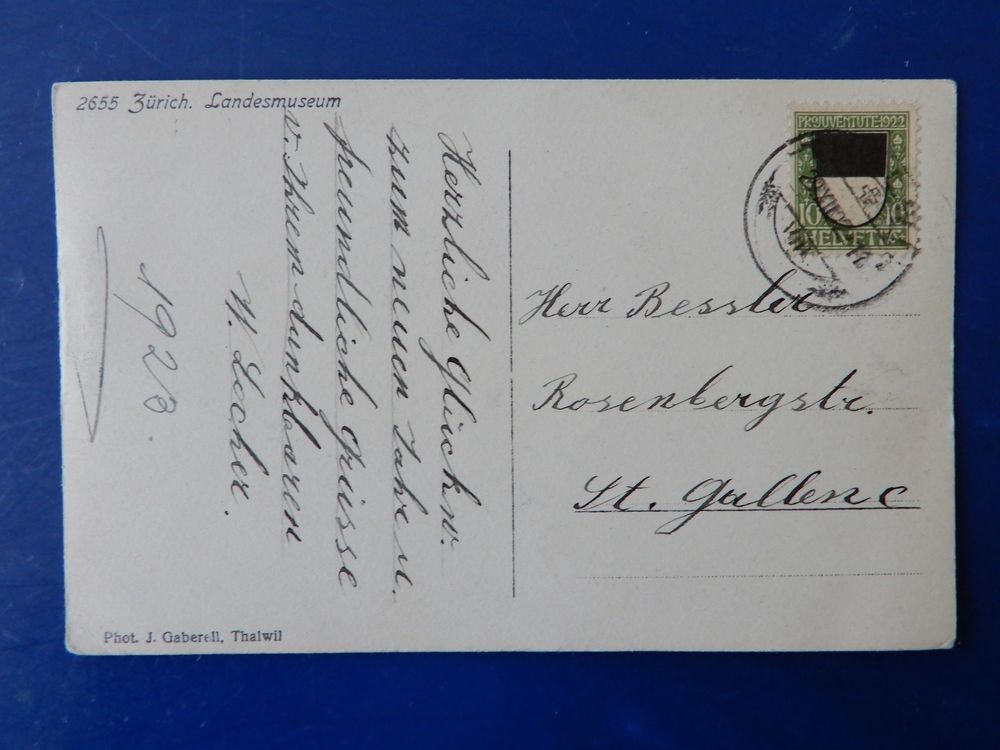 2655 Zürich. Landesmuseum
Herzliche Glückw.
zum neuen Jahre u.
freundliche Grüsse
v. Ihrem dankbaren
W. Locher.
1923.
PRO JUVENTUTE 1922
10 10
HELVETIA
Herr Bessler
Rosenbergstr.
St. Gallen C
Phot. J. Gaberell, Thalwil